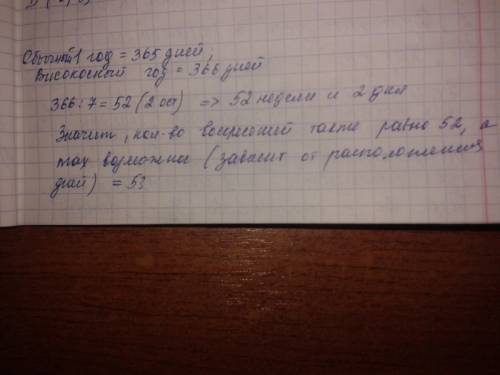 Обычный 1 год = 365 дней,
Високосный год = 366 дней
366:7 = 52 (2 ост) => 52 недели и 2 дня
Значит, кол-во воскресений также равно 52, а
max возможное (зависит от расположения
дней) = 53